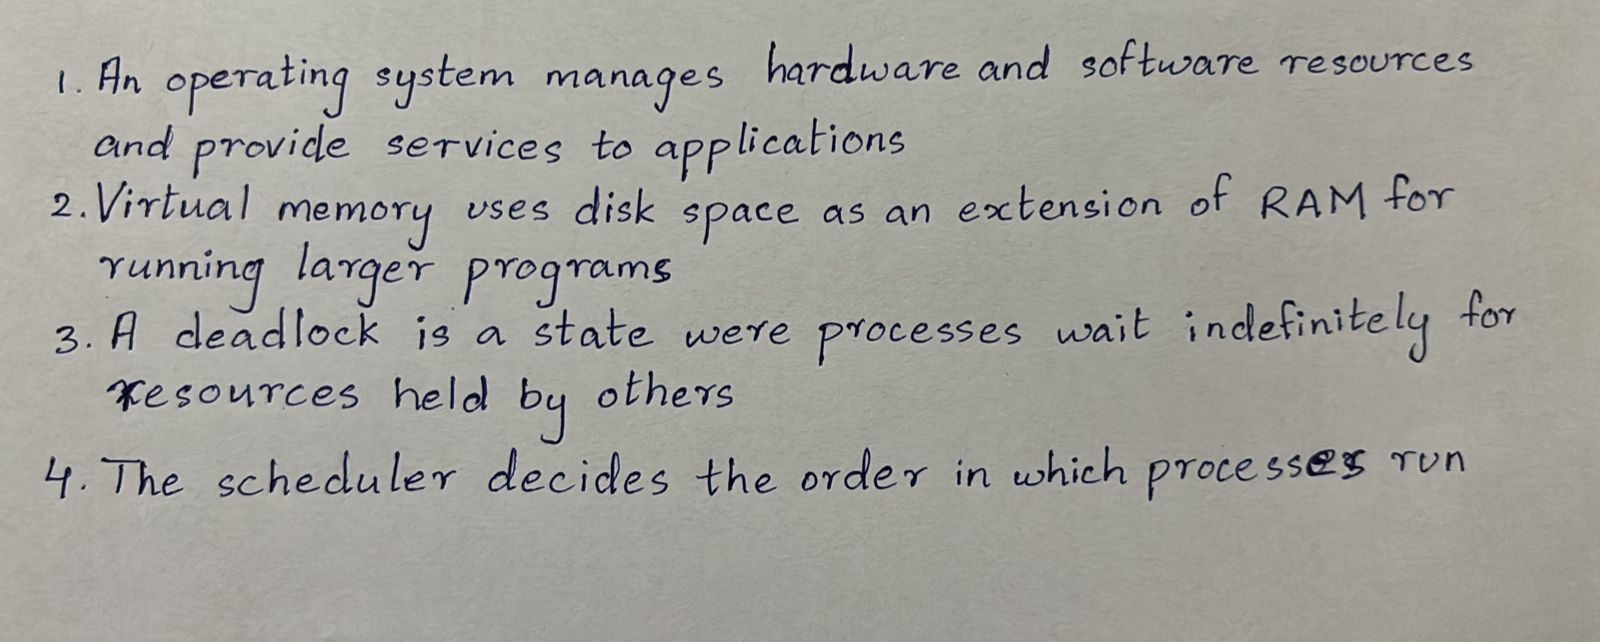 1. An operating system manages hardware and software resources
and provide services to applications
2. Virtual memory uses disk space as an extension of RAM for
running larger programs
3. A deadlock is a state were processes wait indefinitely for
resources held by others
4. The scheduler decides the order in which processes run